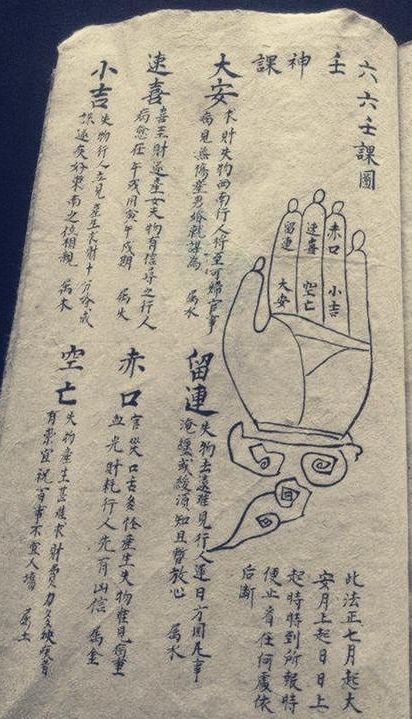 六六壬課圖
壬神課
大安
求財失物西南行人行至何婦官事
病見無傷產男婚就謀為 屬水
速喜
喜至財運產女失物有信尋之行人
病愈在午戌用寅午戌期 屬火
小吉
失物行人立見產生求財十分
疾好東南之位相親 屬木
留連
失物去遠難見行人運日方回凡事
淹纏或緩須知且暫放心 屬水
赤口
官災口舌多怪產生失物難見病重
血光財耗行人先有凶信 屬金
空亡
失物產生甚難求財費力多缺疾昔
有祟宜祝百事不宜入墳 屬土
留連
速喜
赤口
大安
空亡
小吉
此法正七月起大
安月上起日日上
起時時到所報時
便止看在何處依
后斷